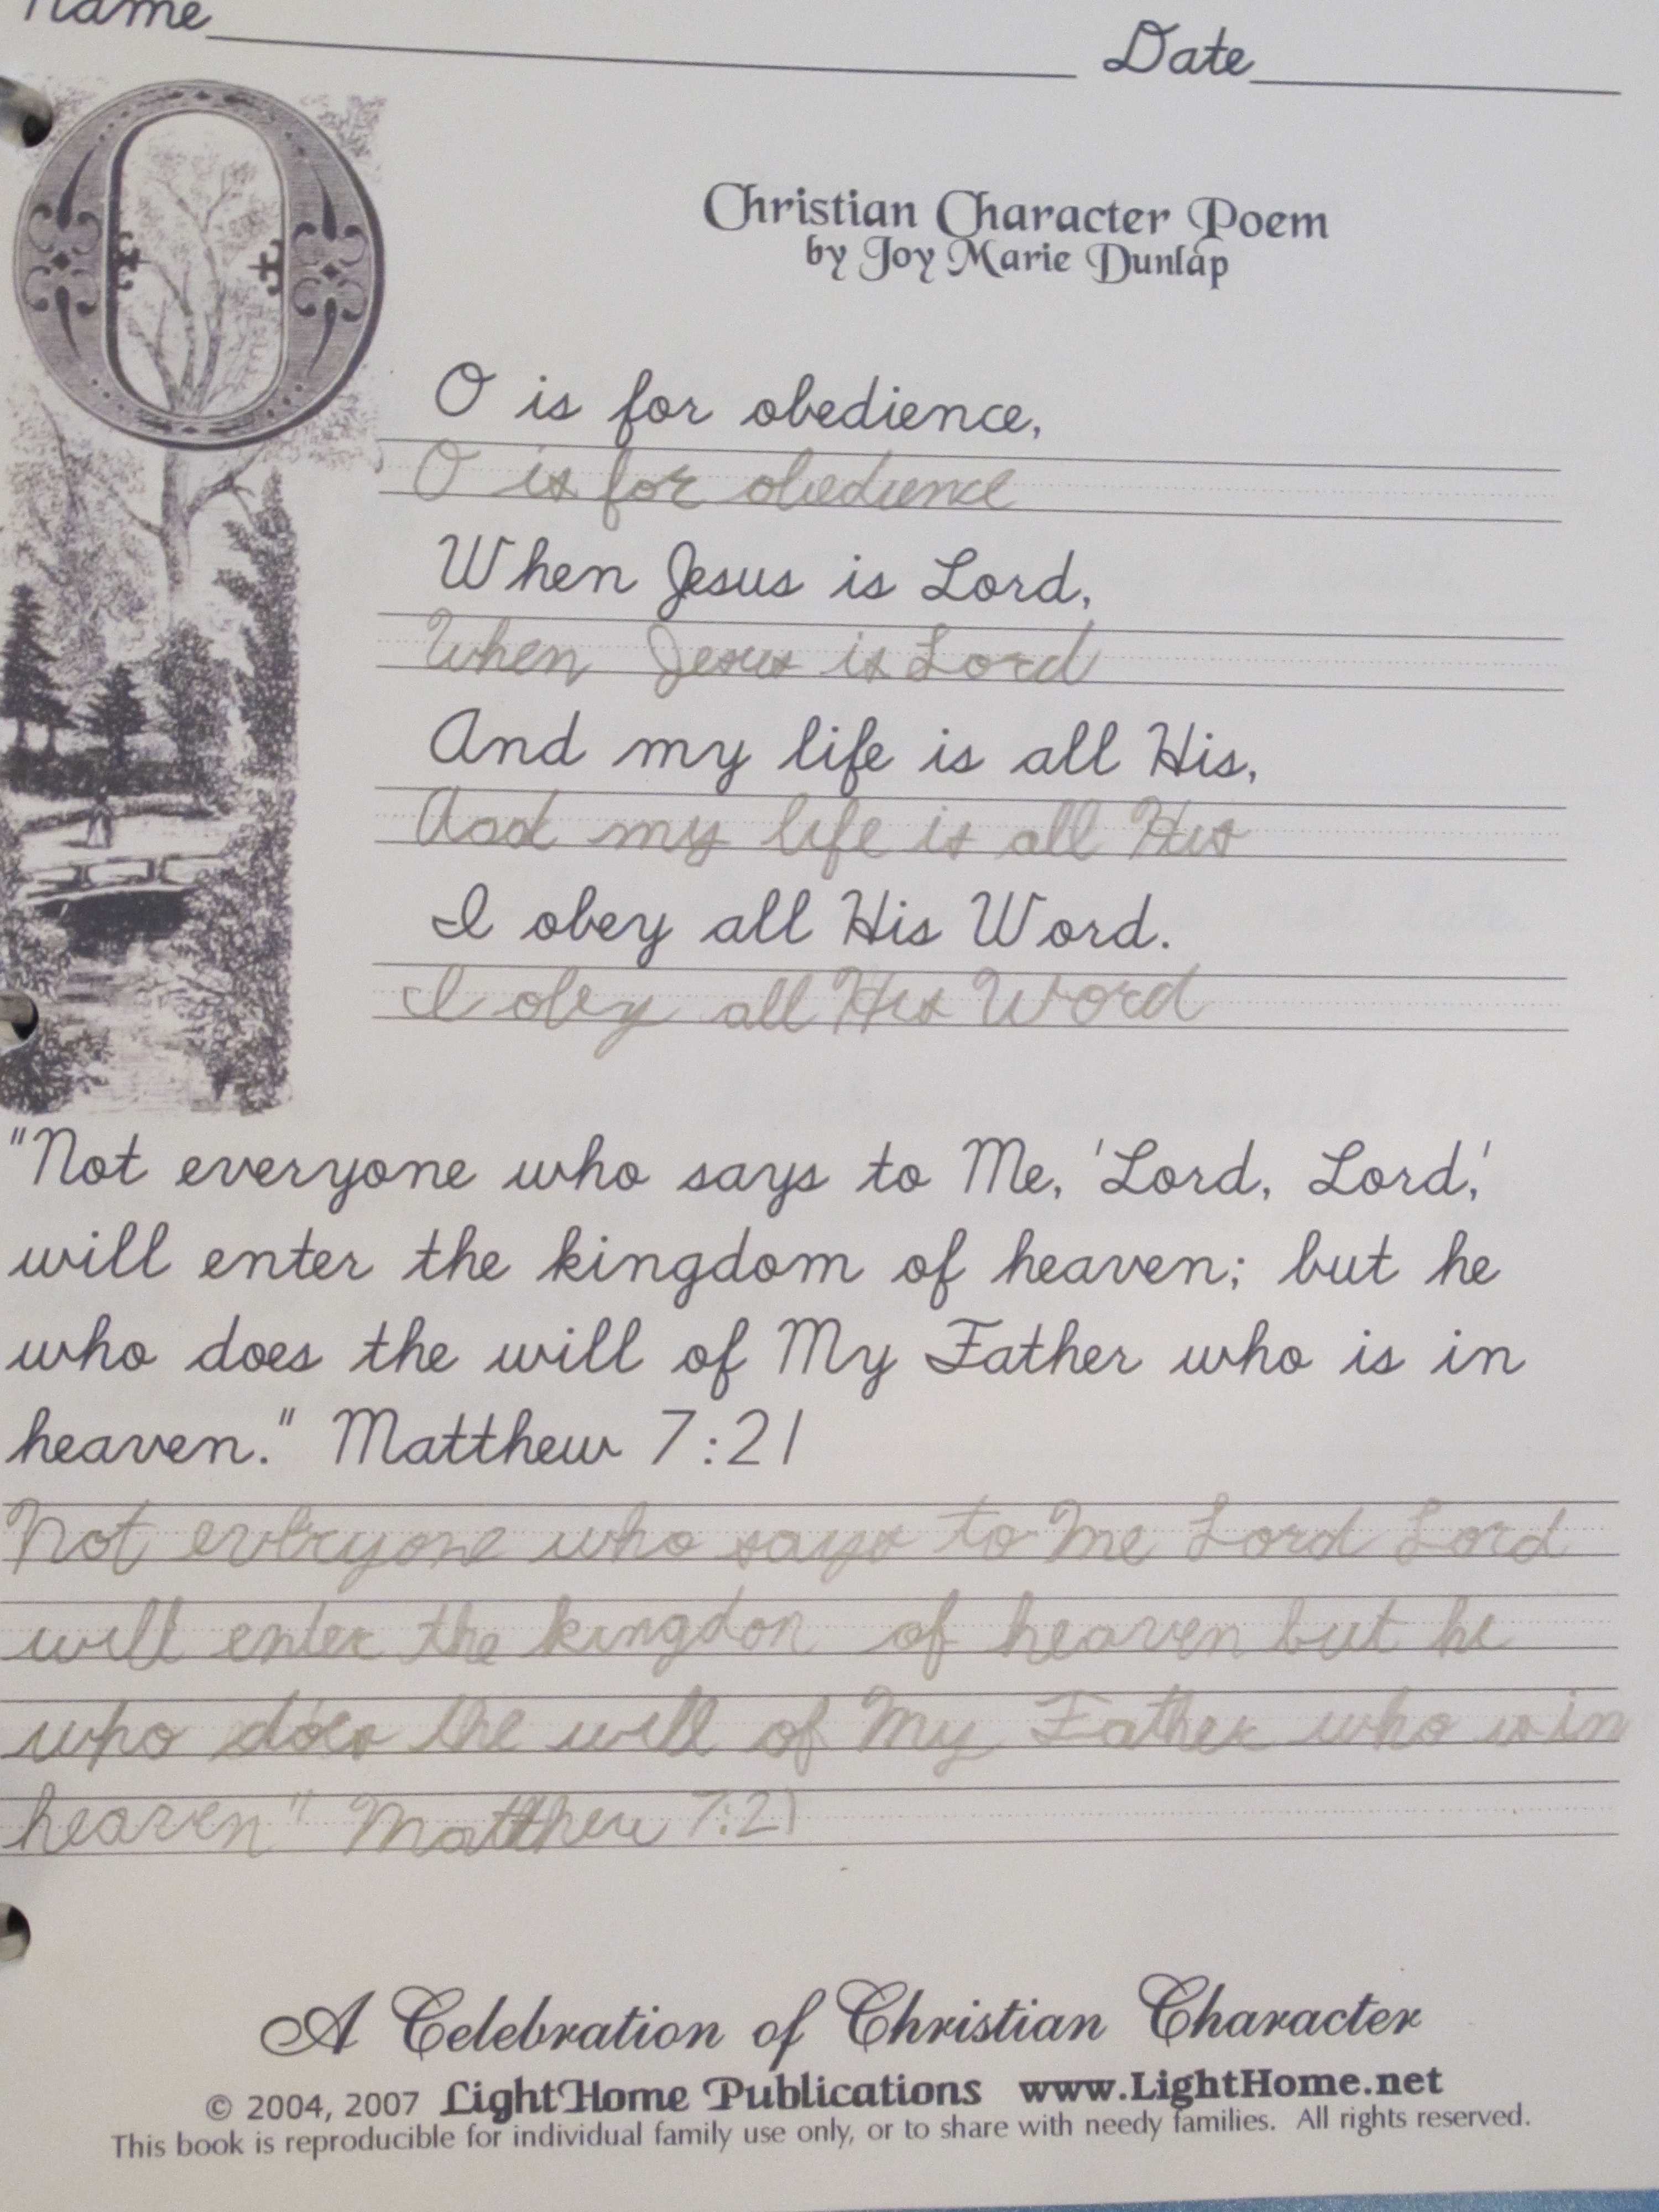 Name Date
O
Christian Character Poem
by Joy Marie Dunlap
O is for obedience,
O is for obedience
When Jesus is Lord,
When Jesus is Lord
And my life is all His,
And my life is all His
I obey all His Word.
I obey all His Word
"Not everyone who says to Me, 'Lord, Lord,'
will enter the kingdom of heaven; but he
who does the will of My Father who is in
heaven." Matthew 7:21
Not everyone who says to Me Lord Lord
will enter the kingdon of heaven but he
who does the will of My Father who is in
heaven" Matthew 7:21
A Celebration of Christian Character
© 2004, 2007 LightHome Publications www.LightHome.net
This book is reproducible for individual family use only, or to share with needy families. All rights reserved.